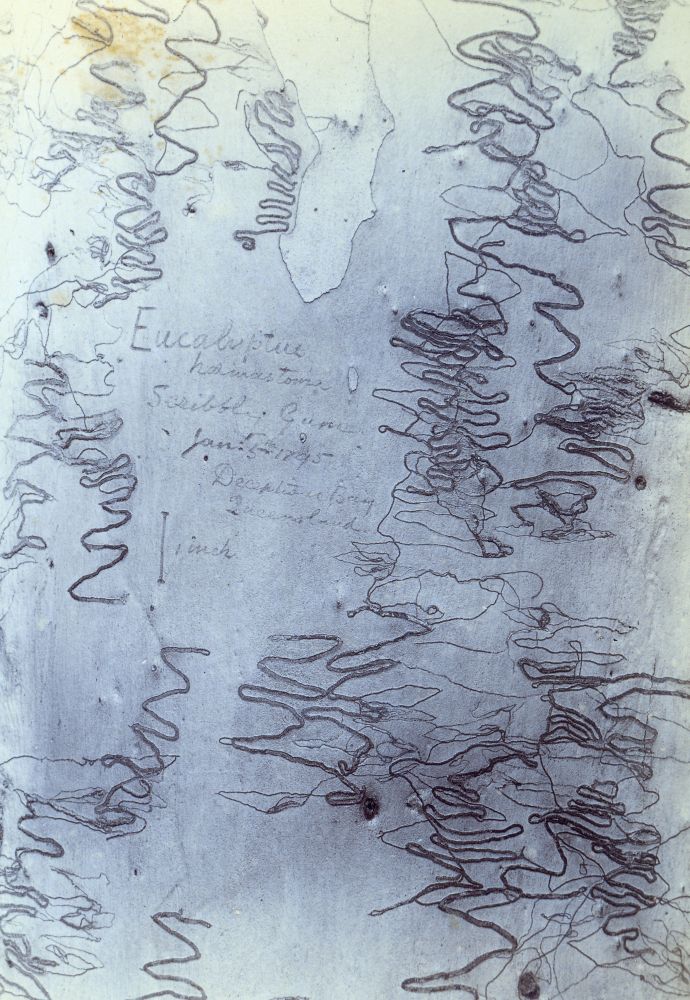 Eucalyptus
haemastoma
Scribbly Gum
Jan 5th 1895
Deception Bay
Queensland
1 inch